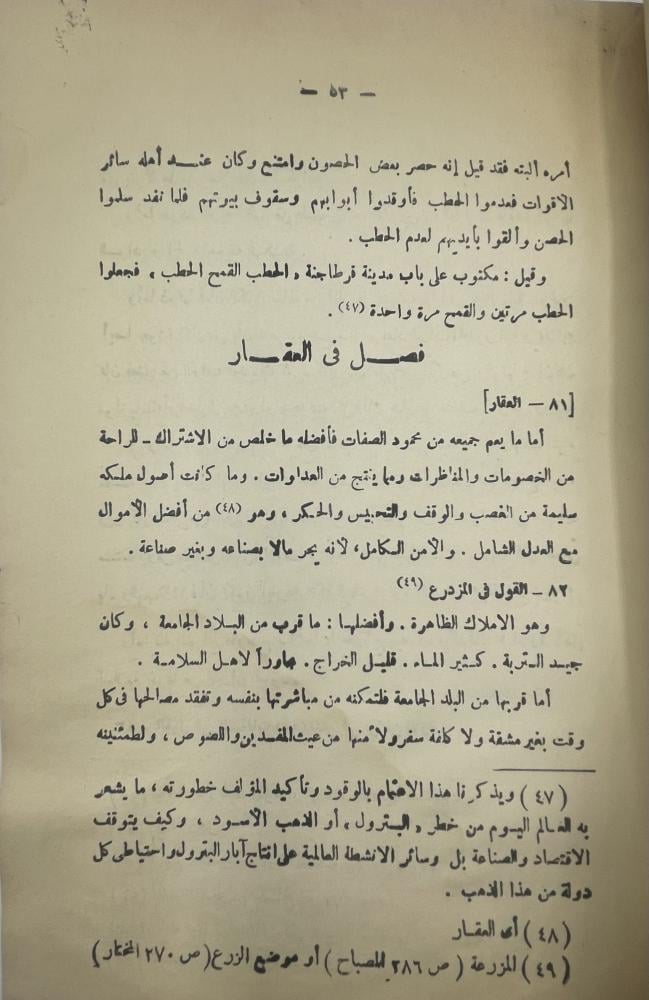 — ٥٣ —
أمره ألبته فقد قيل إنه حصر بعض الحصون وامتنع وكان عند أهله سائر
الاقوات فعدموا الحطب فأوقدوا أبوابهم وسقوف بيوتهم فلما نفد سلموا
الحصن وألقوا بأيديهم لعدم الحطب .
وقيل : مكتوب على باب مدينة قرطاجنة « الحطب القمح الحطب » فجعلوا
الحطب مرتين والقمح مرة واحدة (٤٧) .
فصل فى العقار
[٨١ — العقار]
أما ما يعم جميعه من محمود الصفات فأفضله ما خلص من الاشتراك – للراحة
من الخصومات والمناظرات ومما ينتج من العداوات . وما كانت أصول ملكه
سليمة من الغصب والوقف والتحبيس والحكر ، وهو (٤٨) من أفضل الأموال
مع العدل الشامل . والأمن الكامل، لأنه يجر مالا بصناعه وبغير صناعة .
٨٢ – القول فى المزدرع (٤٩)
وهو الاملاك الظاهرة . وأفضلها : ما قرب من البلاد الجامعة ، وكان
جيد التربة . كثير الماء . قليل الخراج . مجاوراً لاهل السلامة .
أما قربها من البلد الجامعة فلتمكنه من مباشرتها بنفسه وتفقد مصالحها فى كل
وقت بغير مشقة ولا كلفة سفر ولأمنها من عيث المفسدين واللصوص ، ولطمئنينه
(٤٧) ويذكرنا هذا الاهتمام بالوقود وتأكيد المؤلف خطورته ، ما يشعر
به العالم اليوم من خطر « البترول » أو الذهب الأسود ، وكيف يتوقف
الاقتصاد والصناعة بل وسائر الانشطة العالمية على انتاج آبار البترول واحتياطى كل
دولة من هذا الذهب .
(٤٨) أى العقار
(٤٩) المزرعة (ص ٢٨٦ المصباح) أو موضع الزرع (ص ٢٧٠ المختار)